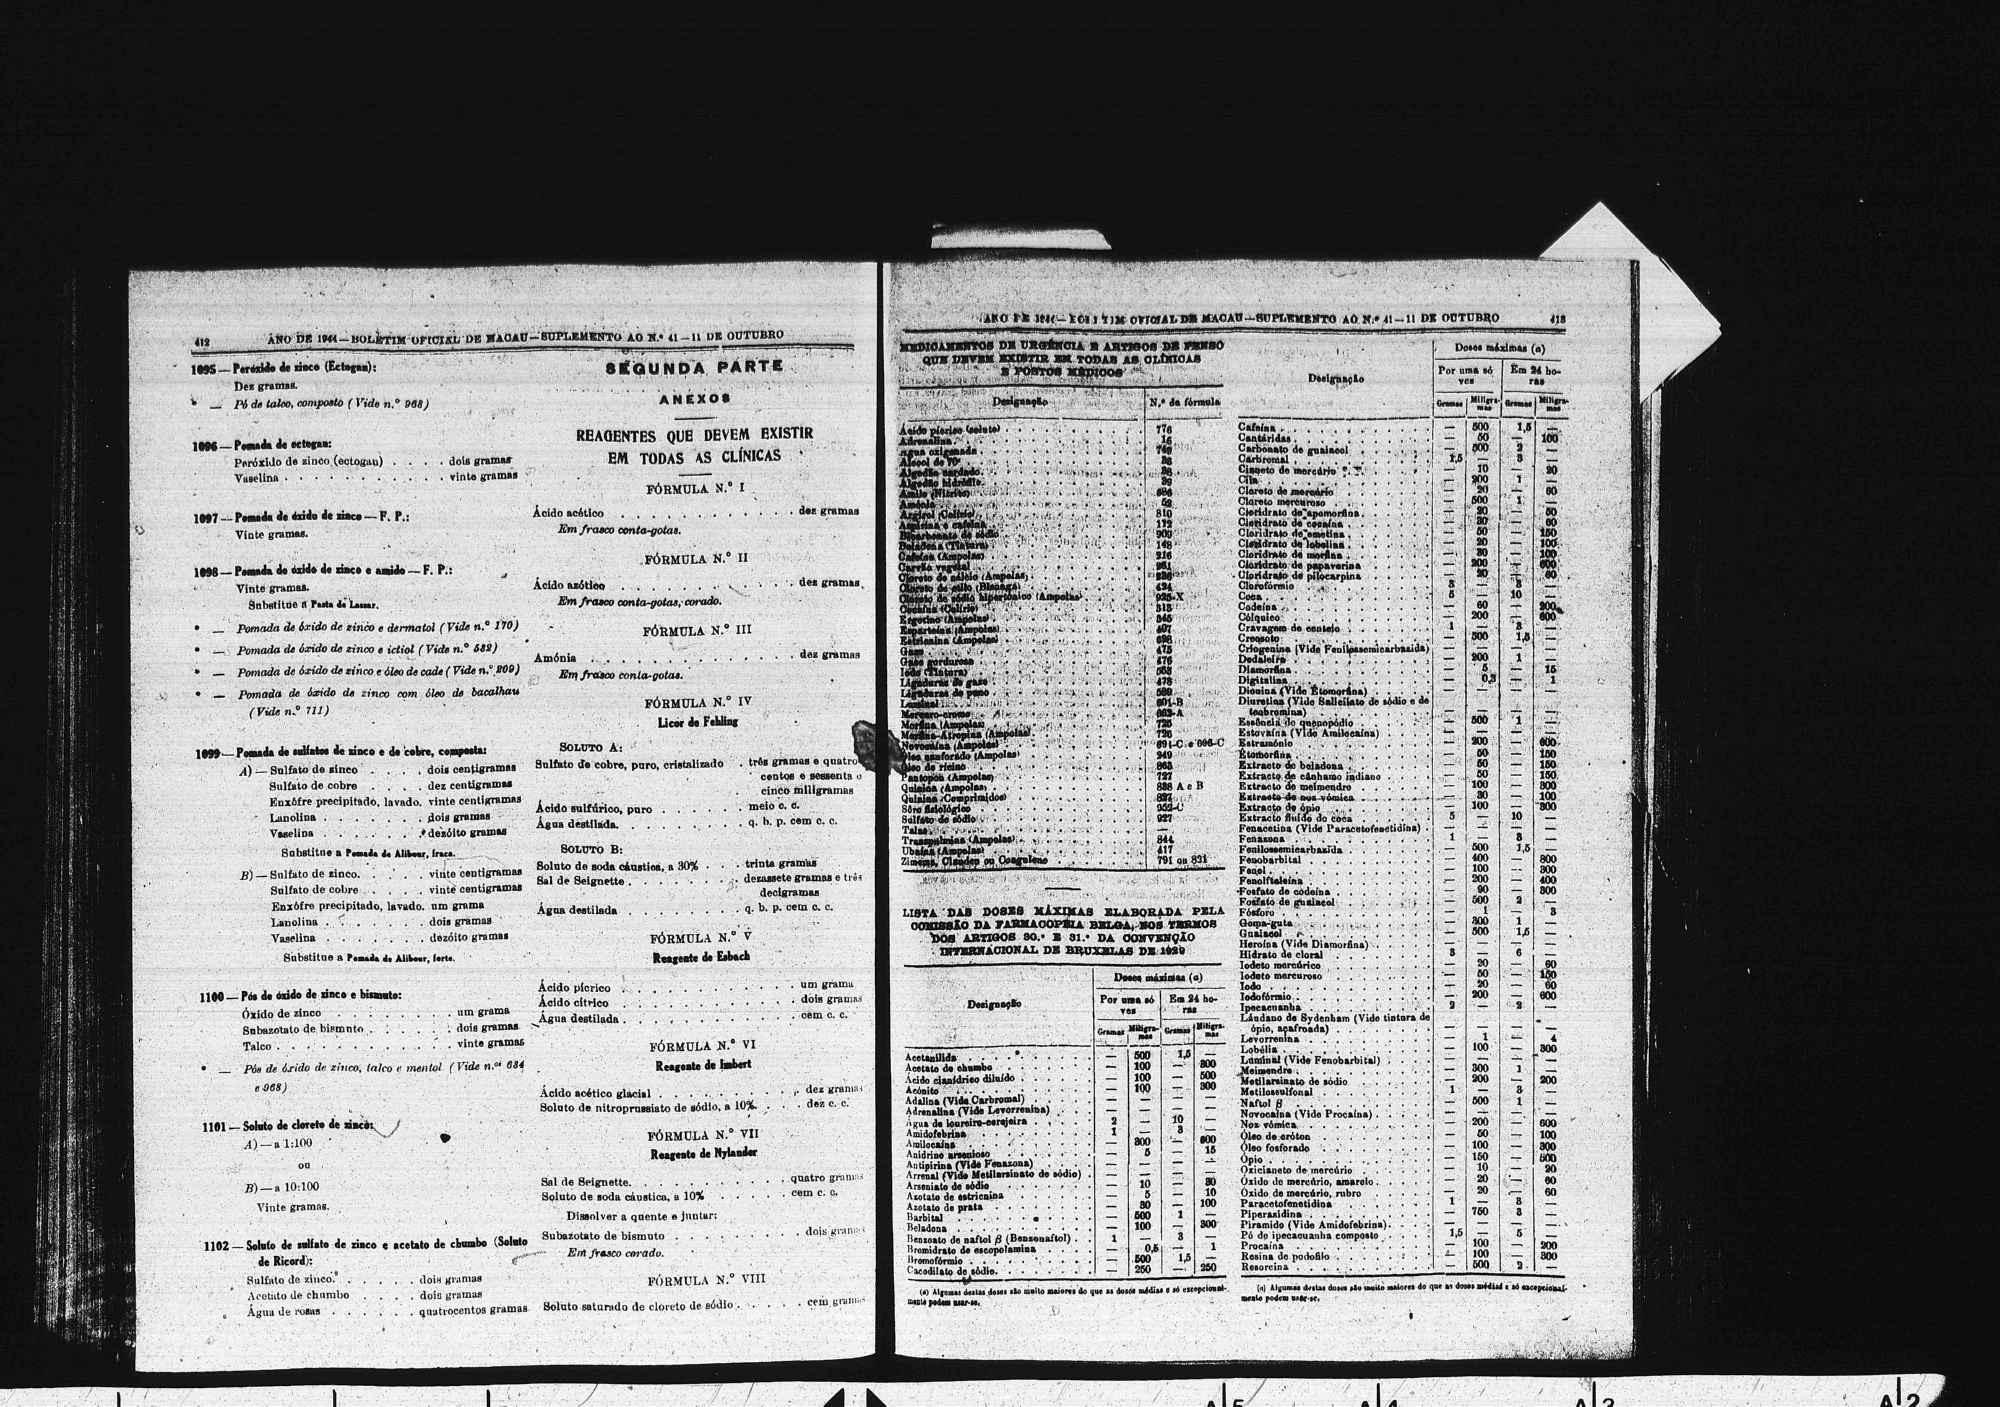 412 ANO DE 1944—BOLETIM OFICIAL DE MACAU—SUPLEMENTO AO N.º 41—11 DE OUTUBRO
1095—Peróxido de zinco (Ectogan):
Dez gramas.
* — Pó de talco, composto (Vide n.º 968)
1096—Pomada de ectogan:
Peróxido de zinco (ectogan) . . . . dois gramas
Vaselina . . . . . . . . . . . vinte gramas
1097—Pomada de óxido de zinco—F. P.:
Vinte gramas.
1098—Pomada de óxido de zinco e amido—F. P.:
Vinte gramas.
Substitue a Pasta de Lassar.
* — Pomada de óxido de zinco e dermatol (Vide n.º 170)
* — Pomada de óxido de zinco e ictiol (Vide n.º 582)
* — Pomada de óxido de zinco e óleo de cade (Vide n.º 209)
* — Pomada de óxido de zinco com óleo de bacalhau
(Vide n.º 711)
1099—Pomada de sulfatos de zinco e de cobre, composta:
A)—Sulfato de zinco . . . . dois centigramas
Sulfato de cobre . . . . dez centigramas
Enxôfre precipitado, lavado. vinte centigramas
Lanolina . . . . . . . dois gramas
Vaselina . . . . . . . dezóito gramas
Substitue a Pomada de Alibour, fraca.
B)—Sulfato de zinco. . . . . vinte centigramas
Sulfato de cobre . . . . vinte centigramas
Enxôfre precipitado, lavado. um grama
Lanolina . . . . . . . dois gramas
Vaselina . . . . . . . dezóito gramas
Substitue a Pomada de Alibour, forte.
1100—Pós de óxido de zinco e bismuto:
Óxido de zinco . . . . . . . . um grama
Subazotato de bismuto . . . . . . dois gramas
Talco . . . . . . . . . . . . vinte gramas
* — Pós de óxido de zinco, talco e mentol (Vide n.os 634
e 968)
1101—Soluto de cloreto de zinco:
A)—a 1:100
ou
B)—a 10:100
Vinte gramas.
1102—Soluto de sulfato de zinco e acetato de chumbo (Soluto
de Ricord):
Sulfato de zinco. . . . . . dois gramas
Acetato de chumbo . . . . dois gramas
Água de rosas . . . . . . quatrocentos gramas
SEGUNDA PARTE
ANEXOS
REAGENTES QUE DEVEM EXISTIR
EM TODAS AS CLÍNICAS
FÓRMULA N.º I
Ácido acético . . . . . . . . . . . . dez gramas
Em frasco conta-gotas.
FÓRMULA N.º II
Ácido azótico . . . . . . . . . . . . dez gramas
Em frasco conta-gotas, corado.
FÓRMULA N.º III
Amónia . . . . . . . . . . . . . . dez gramas
Em frasco conta-gotas.
FÓRMULA N.º IV
Licor de Fehling
SOLUTO A:
Sulfato de cobre, puro, cristalizado . três gramas e quatro
centos e sessenta e
cinco miligramas
Ácido sulfúrico, puro . . . . . . . meio c. c.
Água destilada. . . . . . . . . . q. b. p. cem c. c.
SOLUTO B:
Soluto de soda cáustica, a 30% . . . trinta gramas
Sal de Seignette . . . . . . . . . dezassete gramas e três
decigramas
Água destilada . . . . . . . . . q. b. p. cem c. c.
FÓRMULA N.º V
Reagente de Esbach
Ácido pícrico . . . . . . . . . . . . um grama
Ácido cítrico . . . . . . . . . . . . dois gramas
Água destilada . . . . . . . . . . . . cem c. c.
FÓRMULA N.º VI
Reagente de Imbert
Ácido acético glacial . . . . . . . . . dez gramas
Soluto de nitroprussiato de sódio, a 10%. . . dez c. c.
FÓRMULA N.º VII
Reagente de Nylander
Sal de Seignette. . . . . . . . . . . quatro gramas
Soluto de soda cáustica, a 10% . . . . . . cem c. c.
Dissolver a quente e juntar:
Subazotato de bismuto . . . . . . . . . dois gramas
Em frasco corado.
FÓRMULA N.º VIII
Soluto saturado de cloreto de sódio . . . . . cem gramas
ANO DE 1944—BOLETIM OFICIAL DE MACAU—SUPLEMENTO AO N.º 41—11 DE OUTUBRO 413
MEDICAMENTOS DE URGÊNCIA E ARTIGOS DE PENSO
QUE DEVEM EXISTIR EM TODAS AS CLÍNICAS
E POSTOS MÉDICOS
Designação N.º da fórmula
Ácido pícrico (soluto) 776
Adrenalina 16
Água oxigenada 749
Álcool de 70º
Algodão cardado 38
Algodão hidrófilo 39
Amilo (Nitrito) 686
Amónia 52
Argirol (Colírio) 810
Aspirina e cafeína 112
Bicarbonato de sódio 909
Beladona (Tintura) 148
Cafeína (Ampolas) 216
Carvão vegetal 261
Cloreto de cálcio (Ampolas)
Cloreto de etilo (Bisnaga) 424
Cloreto de sódio hipertónico (Ampolas) 925-X
Cocaína (Colírio) 313
Ergotino (Ampolas) 345
Esparteína (Ampolas) 407
Estricnina (Ampolas) 398
Gase 475
Gase gordurosa 476
Iodo (Tintura) 563
Ligaduras de gase 478
Ligaduras de pano 580
Luminal 601-B
Mercuro-cromo 662-A
Morfina (Ampolas) 725
Morfina-Atropina (Ampolas) 726
Novocaína (Ampolas) 691-C e 696-C
Óleo canforado (Ampolas) 249
Óleo de rícino 863
Pantopon (Ampolas) 727
Quinina (Ampolas) 838 A e B
Quinina (Comprimidos) 827
Sôro fisiológico 952-C
Sulfato de sódio 927
Talas —
Transpulmina (Ampolas) 844
Ubaína (Ampolas) 417
Zimema, Clauden ou Coagulene 791 ou 821
LISTA DAS DOSES MÁXIMAS ELABORADA PELA
COMISSÃO DA FARMACOPÉIA BELGA, NOS TERMOS
DOS ARTIGOS 30.º E 31.º DA CONVENÇÃO
INTERNACIONAL DE BRUXELAS DE 1929
Designação Doses máximas (a)
Por uma só vez Em 24 horas
Gramas Miligramas Gramas Miligramas
Acetanilida — 500 1,5 —
Acetato de chumbo — 100 — 300
Ácido cianídrico diluído — 100 — 500
Acónito — 100 — 300
Adalina (Vide Carbromal) — — — —
Adrenalina (Vide Levorrenina) — — — —
Água de loureiro-cerejeira 2 — 10 —
Amidofebrina 1 — 3 —
Amilocaína — 300 — 600
Anidrino arsenioso — 5 — 15
Antipirina (Vide Fenazona) — — — —
Arrenal (Vide Metilarsinato de sódio) — — — —
Arseniato de sódio — 10 — 30
Azotato de estricnina — 5 — 10
Azotato de prata — 30 — 100
Barbital — 500 1 —
Beladona — 100 — 300
Benzoato de naftol β (Benzonaftol) 1 — 3 —
Bromidrato de escopolamina — 0,5 — 1
Bromofórmio — 500 1,5 —
Cacodilato de sódio — 250 — 250
(a) Algumas destas doses são muito maiores do que as doses médias e só excepcional-
mente podem usar-se.
Designação Doses máximas (a)
Por uma só vez Em 24 horas
Gramas Miligramas Gramas Miligramas
Cafeína — 500 1,5 —
Cantáridas — 50 — 100
Carbonato de guaiacol — 500 2 —
Carbromal 1,5 — 3 —
Cianeto de mercúrio — 10 — 20
Cila — 200 1 —
Cloreto de mercúrio — 20 — 60
Cloreto mercuroso — 500 1 —
Cloridrato de apomorfina — 20 — 50
Cloridrato de cocaína — 30 — 60
Cloridrato de emetina — 50 — 150
Cloridrato de lobelina — 20 — 100
Cloridrato de morfina — 30 — 100
Cloridrato de papaverina — 200 — 600
Cloridrato de pilocarpina — 20 — 60
Clorofórmio 3 — 3 —
Coca 5 — 10 —
Codeína — 60 — 200
Cólquico — 200 — 600
Cravagem de centeio 1 — 3 —
Creosoto — 500 1,5 —
Criogenina (Vide Fenilossemicarbazida) — — — —
Dedaleira — 200 1 —
Diamorfina — 5 — 15
Digitalina — 0,3 — 1
Dionina (Vide Etomorfina) — — — —
Diuretina (Vide Salicilato de sódio e de
teobromina) — — — —
Essência de quenopódio — 500 1 —
Estovaína (Vide Amilocaína) — — — —
Estramónio — 200 — 600
Etomorfina — 50 — 150
Extracto de beladona — 50 — 150
Extracto de cânhamo indiano — 50 — 150
Extracto de meimendro — 100 — 300
Extracto de noz vómica — 30 — 100
Extracto de ópio — 100 — 300
Extracto fluido de coca 5 — 10 —
Fenacetina (Vide Paracetofenetidina) — — — —
Fenazona 1 — 3 —
Fenilossemicarbazida — 500 1,5 —
Fenobarbital — 400 — 800
Fenol — 100 — 300
Fenolftaleína — 200 — 400
Fosfato de codeína — 90 — 300
Fosfato de guaiacol — 500 2 —
Fósforo — 1 — 3
Goma-guta — 300 1 —
Guaiacol — 500 1,5 —
Heroína (Vide Diamorfina) — — — —
Hidrato de cloral 3 — 6 —
Iodeto mercúrico — 20 — 60
Iodeto mercuroso — 50 — 150
Iodo — 20 — 60
Iodofórmio — 200 — 600
Ipecacuanha 2 — 2 —
Láudano de Sydenham (Vide tintura de
ópio, açafroada) — — — —
Levorrenina — 1 — 4
Lobélia — 100 — 300
Luminal (Vide Fenobarbital) — — — —
Meimendro — 300 1 —
Metilarsinato de sódio — 200 — 200
Metilossulfonal 1 — 3 —
Naftol β — 500 1 —
Novocaína (Vide Procaína) — — — —
Noz vómica — 200 — 600
Óleo de cróton — 50 — 100
Óleo fosforado — 100 — 300
Ópio — 150 — 500
Oxicianeto de mercúrio — 10 — 20
Óxido de mercúrio, amarelo — 20 — 60
Óxido de mercúrio, rubro — 20 — 60
Paracetofenetidina 1 — 3 —
Piperazidina — 750 3 —
Piramido (Vide Amidofebrina) — — — —
Pó de ipecacuanha composto 1,5 — 5 —
Procaína — 100 — 200
Resina de podofilo — 100 — 300
Resorcina — 500 2 —
(a) Algumas destas doses são muito maiores do que as doses médias e só excepcional-
mente podem usar-se.
A 5 A 4 A 3 A 2